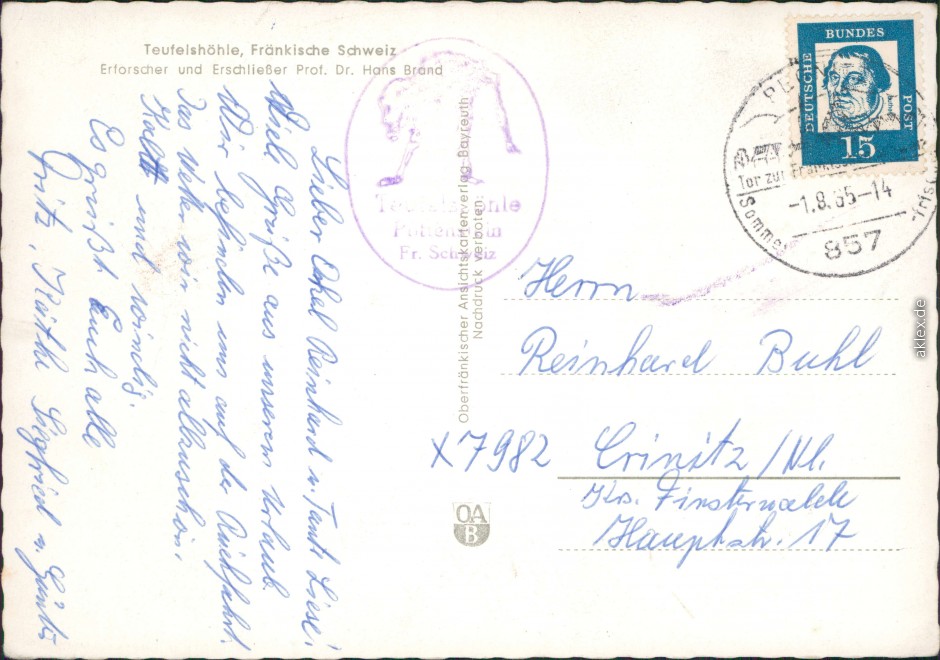 Teufelshöhle, Fränkische Schweiz
Erforscher und Erschließer Prof. Dr. Hans Brand
Lieber Onkel Reinhard u. Tante Liese!
Viele Grüße aus unserem Urlaub.
Wir befinden uns auf der Rückfahrt.
Das Wetter war nicht allzu schön.
Kalt und windig.
Es grüßt Euch alle
Fritz, Käthe Siegfried u. Günter
Teufelshöhle
Pottenstein
Fr. Schweiz
Oberfränkischer Ansichtskartenverlag Bayreuth
Nachdruck verboten.
OA
B
DEUTSCHE
BUNDES
POST
15
Tor zur Fränkischen
-1.8.65-14
Sommer
frisch
857
Herrn
Reinhard Buhl
X7982 Crinitz/Nl.
Krs. Finsterwalde
Hauptstr. 17
aklex.de